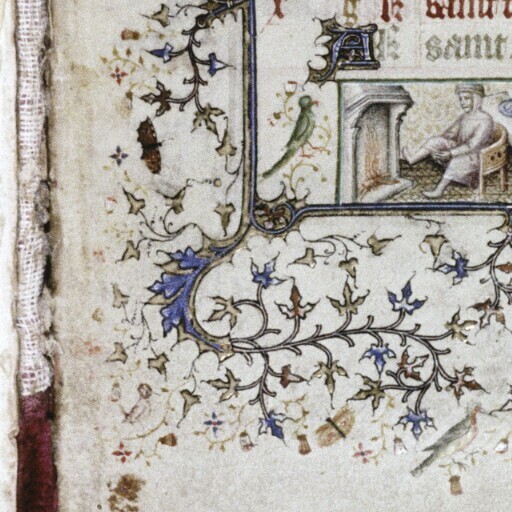 x g k saint
A k saint